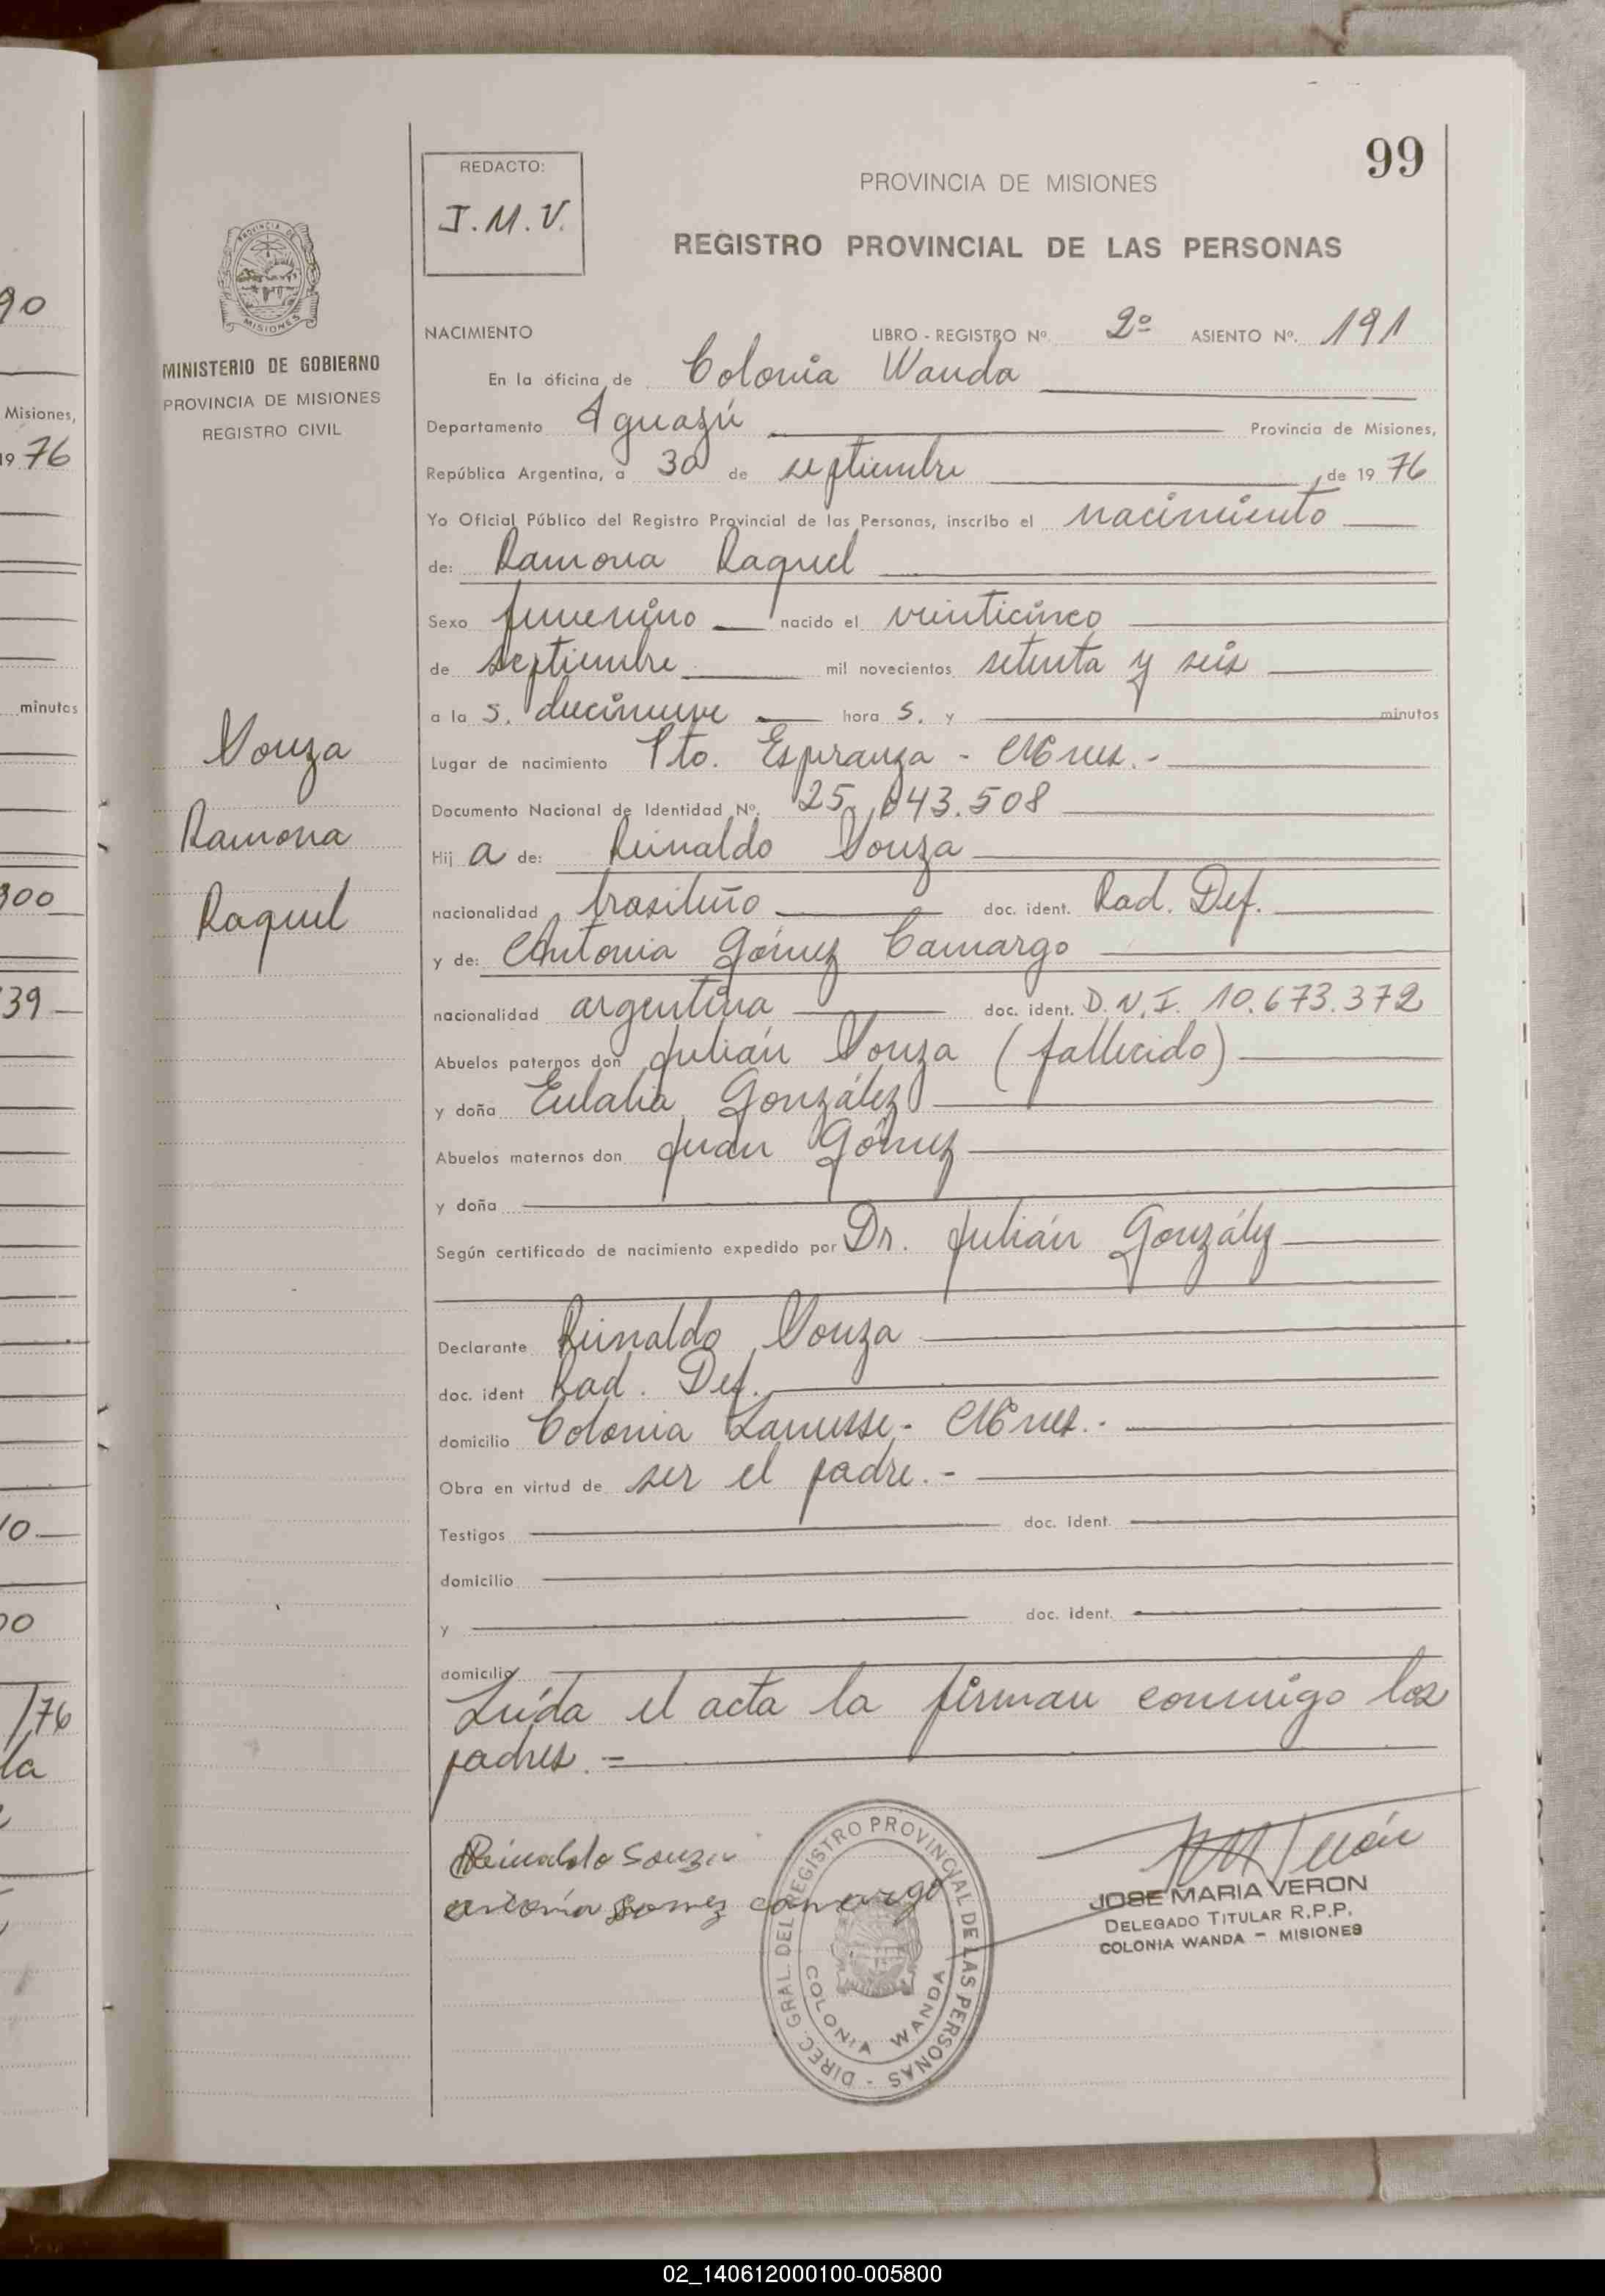 90
Misiones,
19 76
minutos
300
139
10
00
/76
la
PROVINCIA DE
MISIONES
MINISTERIO DE GOBIERNO
PROVINCIA DE MISIONES
REGISTRO CIVIL
Souza
Ramona
Raquel
REDACTO:
J.M.V.
99
PROVINCIA DE MISIONES
REGISTRO PROVINCIAL DE LAS PERSONAS
NACIMIENTO LIBRO - REGISTRO Nº. 2º ASIENTO Nº. 191
En la oficina de Colonia Wanda
Departamento Iguazú Provincia de Misiones,
República Argentina, a 30 de septiembre de 19 76
Yo Oficial Público del Registro Provincial de las Personas, inscribo el nacimiento
de: Ramona Raquel
Sexo femenino nacido el veinticinco
de septiembre mil novecientos setenta y seis
a la s. diecinueve hora s. y minutos
Lugar de nacimiento Pto. Esperanza - Mnes.-
Documento Nacional de Identidad Nº. 25.043.508
Hij a de: Reinaldo Souza
nacionalidad brasileño doc. ident. Rad. Def.
y de: Antonia Gómez Camargo
nacionalidad argentina doc. ident. D.N.I. 10.673.372
Abuelos paternos don Julián Souza (fallecido)
y doña Eulalia González
Abuelos maternos don Juan Gómez
y doña
Según certificado de nacimiento expedido por Dr. Julián González
Declarante Reinaldo Souza
doc. ident Rad. Def.
domicilio Colonia Lanusse.- Mnes.-
Obra en virtud de ser el padre.-
Testigos doc. ident.
domicilio
y doc. ident.
domicilio
Leída el acta la firman conmigo los
padres.=
Reinaldo Souza
antonia gomez camargo
DIREC. GRAL. DEL REGISTRO PROVINCIAL DE LAS PERSONAS -
COLONIA WANDA
JMVerón
JOSE MARIA VERON
DELEGADO TITULAR R.P.P.
COLONIA WANDA - MISIONES
02_140612000100-005800